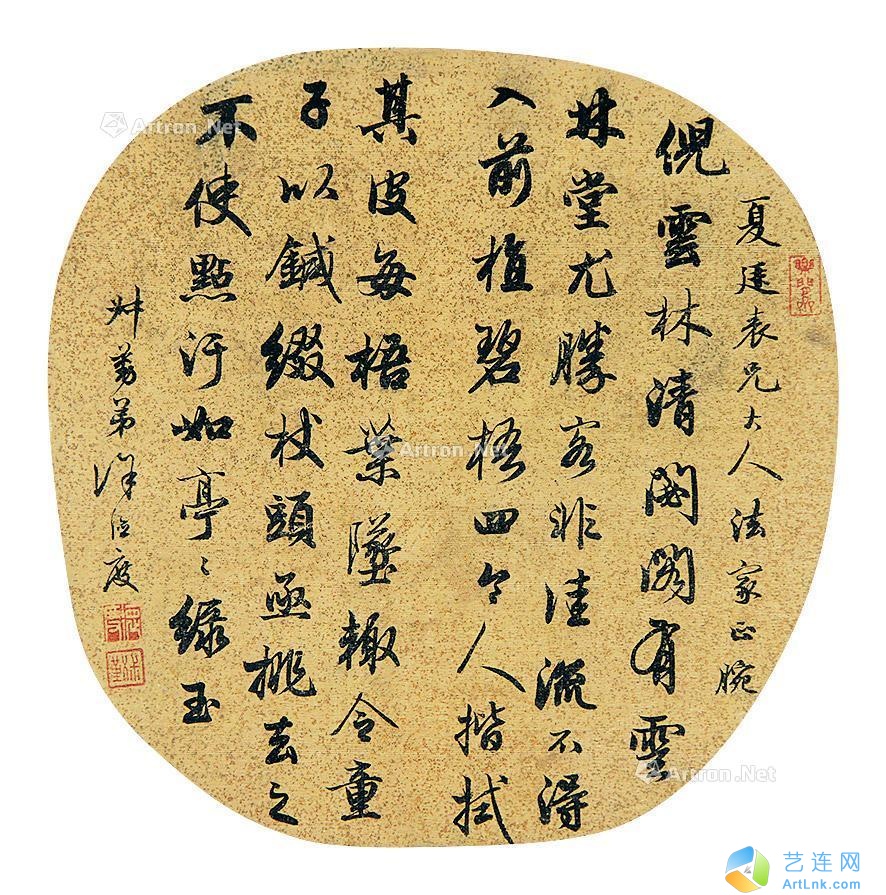 夏廷表兄大人法家正腕
倪雲林清閟閣有雲
林堂尤勝客非佳流不得
入前植碧梧四令人揩拭
其皮每梧葉墜輙令童
子以鍼綴杖頭亟挑去之
不使點汙如亭〻綠玉
弟 度
Artron.Net
Artron.Net
Artron.Net
艺连网
ArtLnk.com